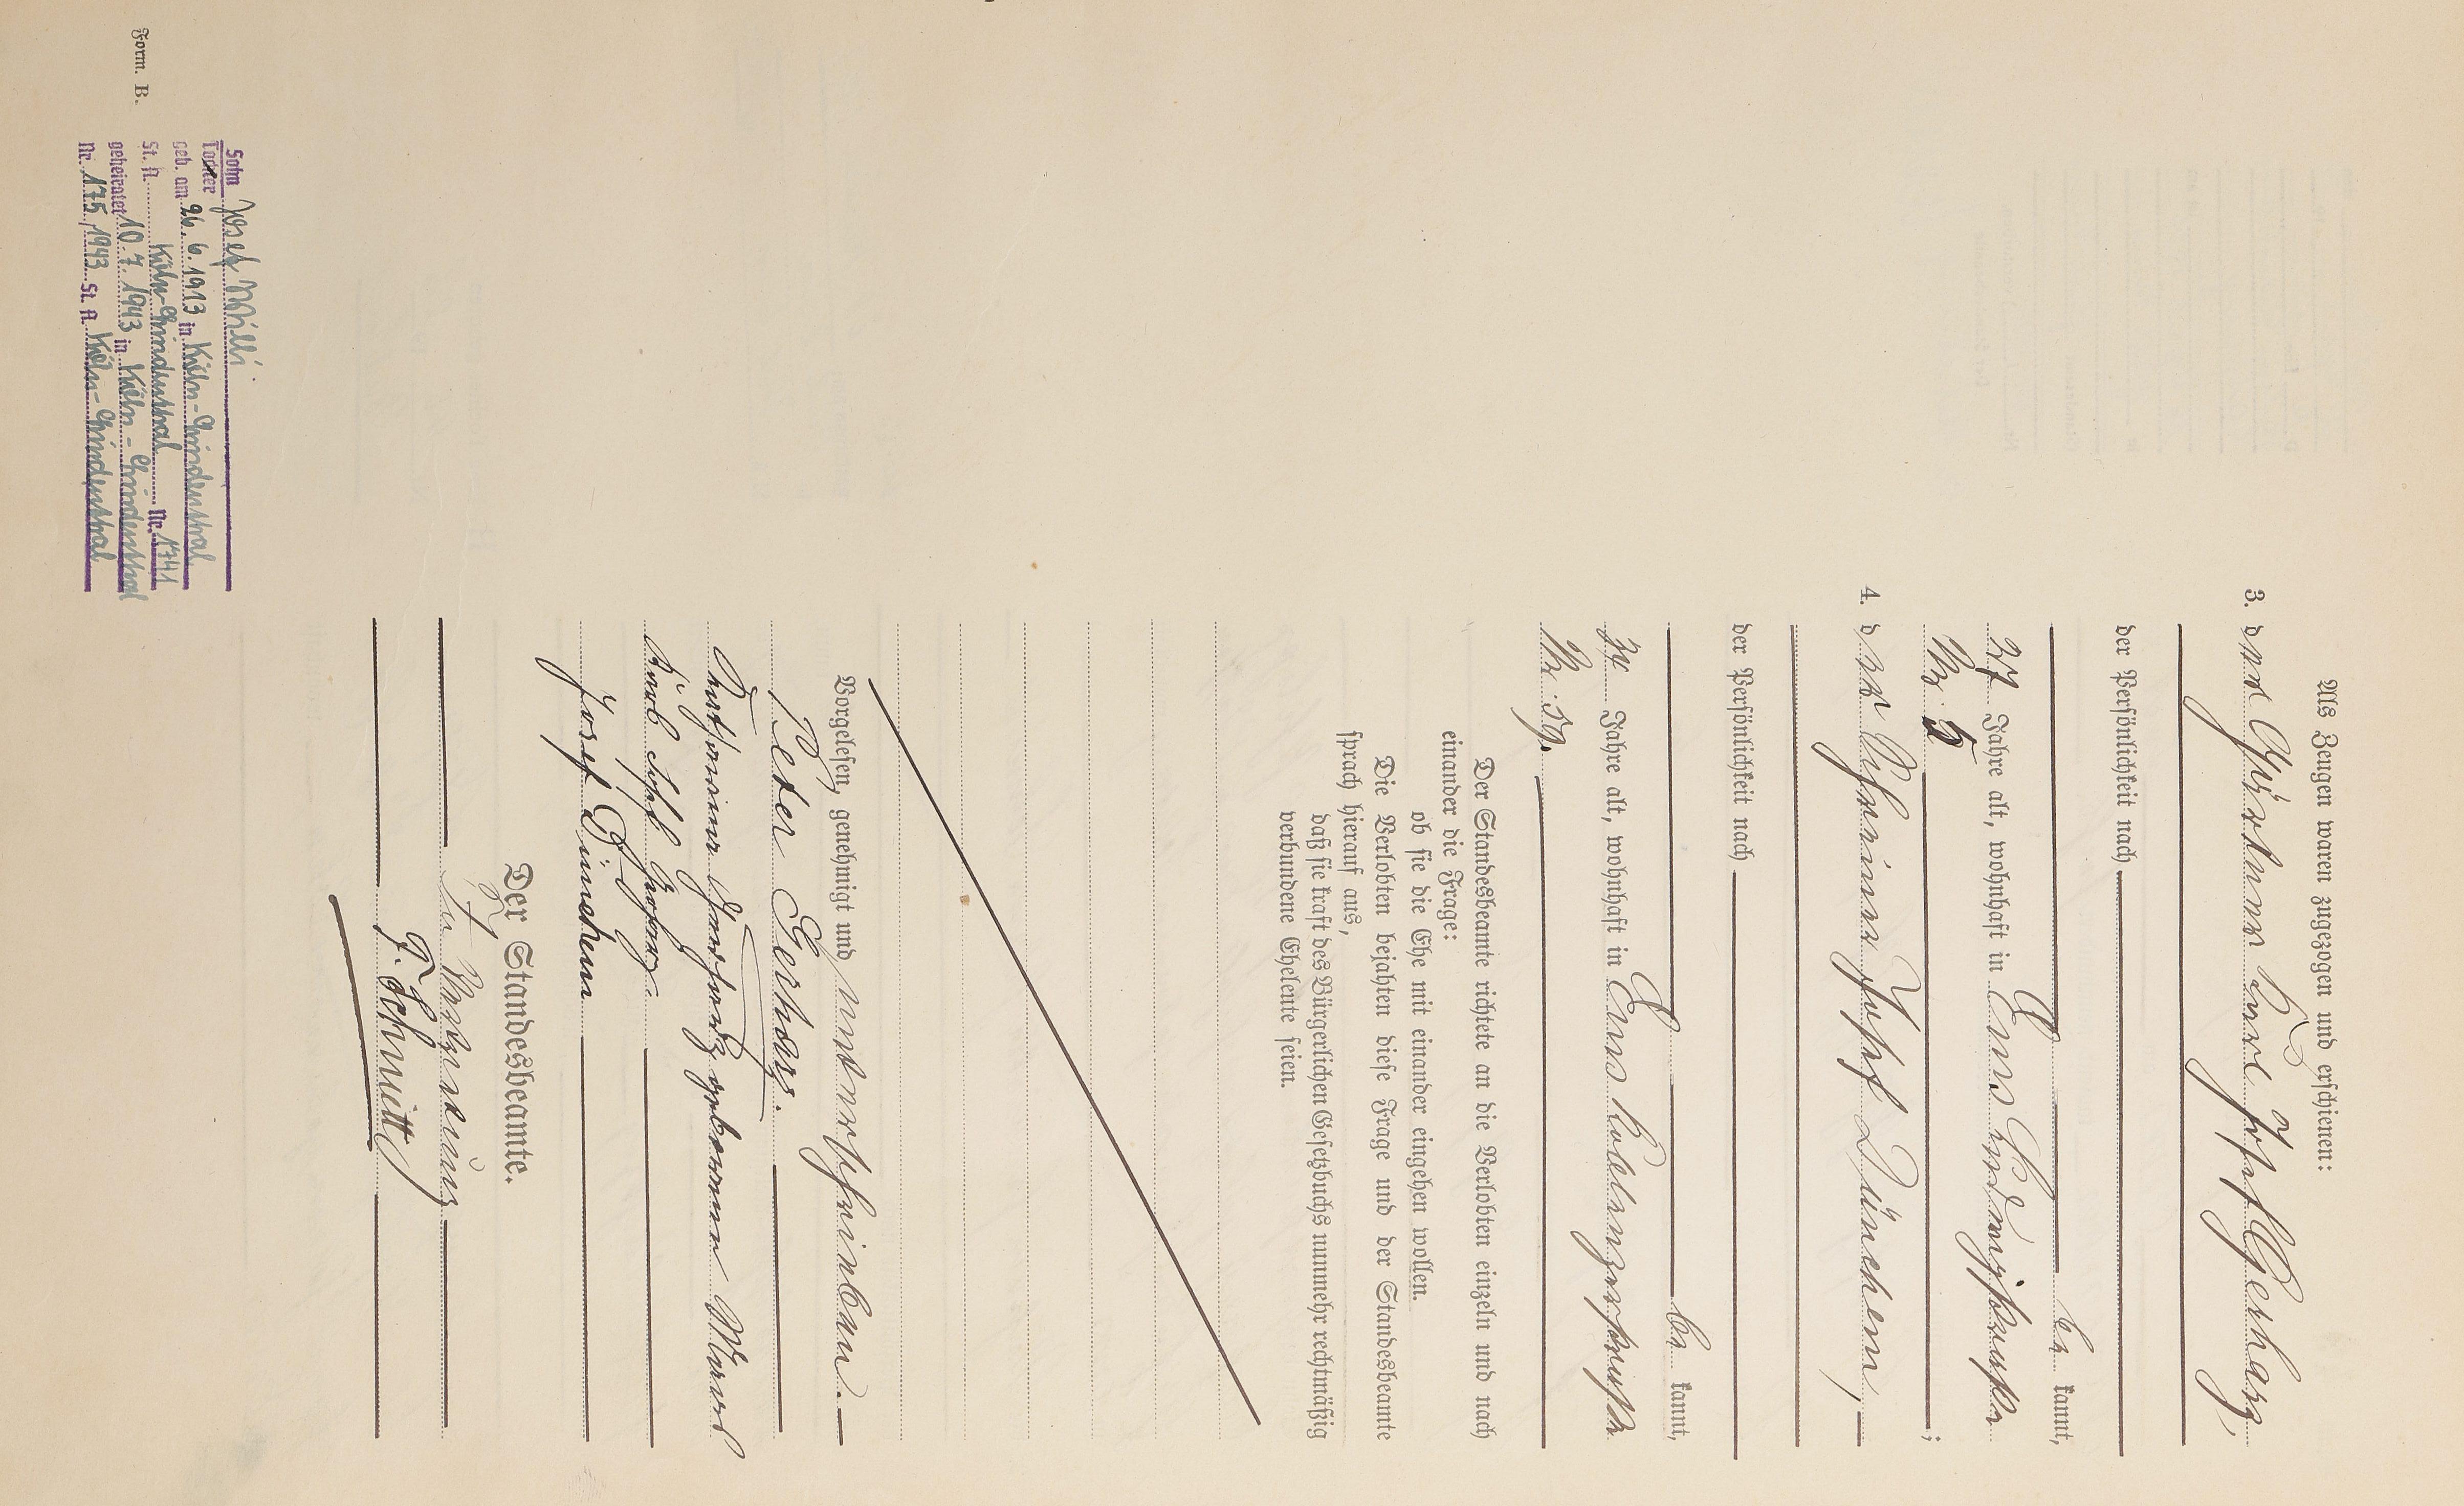 Als Zeugen waren zugezogen und erschienen:
3. der Gürtner Karl Josef Gerharz,
der Persönlichkeit nach
be kannt,
27 Jahre alt, wohnhaft in Ems Ludwigstraße
Nr. 5 ;
4. der Schreiner Josef Dünchem,
der Persönlichkeit nach
be kannt,
34 Jahre alt, wohnhaft in Ems Koblenzerstraße
Nr. 59.
Der Standesbeamte richtete an die Verlobten einzeln und nach
einander die Frage:
ob sie die Ehe mit einander eingehen wollen.
Die Verlobten bejahten diese Frage und der Standesbeamte
sprach hierauf aus,
daß sie kraft des Bürgerlichen Gesetzbuchs nunmehr rechtmäßig
verbundene Eheleute seien.
Vorgelesen, genehmigt und unterschrieben.
Peter Gerharz.
Katharina Gerharz geborene
Karl Josef Gerharz
Josef Dünchem
Der Standesbeamte.
In Vertretung
F. Schmitt
Form. B.
Sohn Josef Willi
Tochter
geb. am 26.6.1913 in Köln-Lindenthal
St. A. Köln-Lindenthal Nr. 1741
geheiratet 10.7.1943 in Köln-Lindenthal
Nr. 175/1943 St. A. Köln-Lindenthal